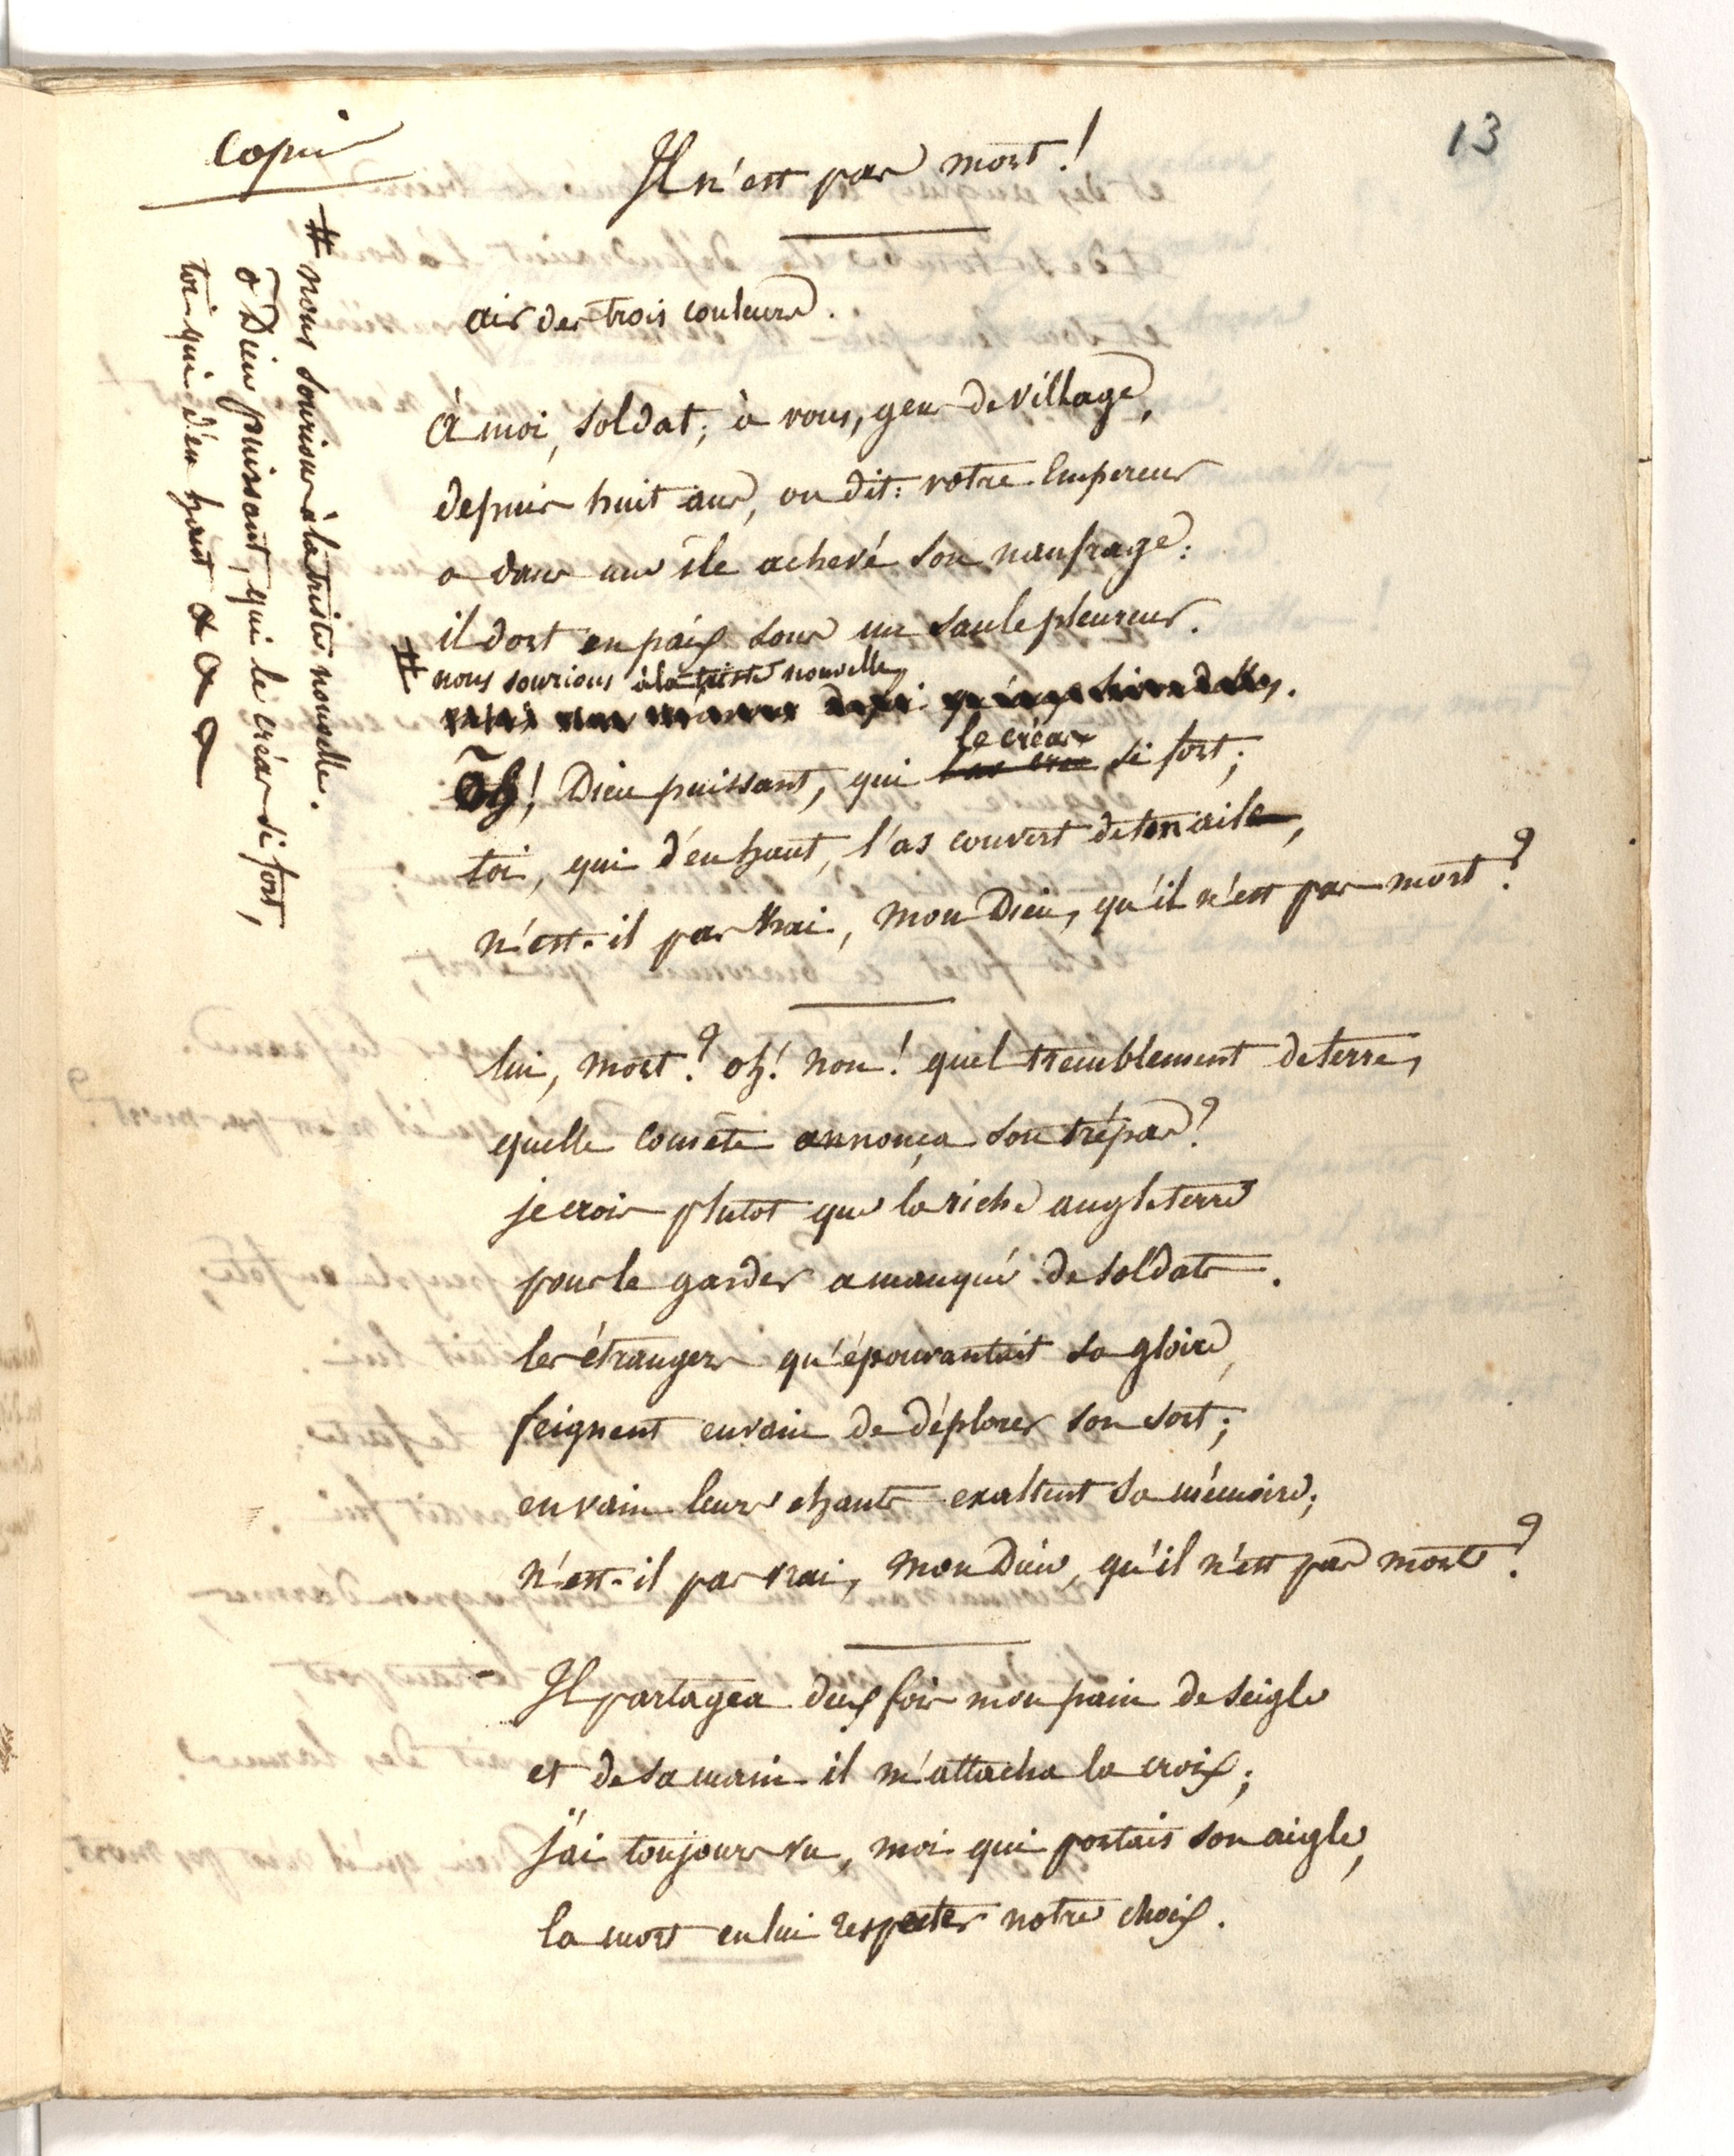 13
copié
Il n'est pas mort!
air des trois couleurs.
# nous sourions à la triste nouvelle.
ô Dieu puissant, qui le créas si fort,
toi qui d'en haut & a a a
à moi, soldat; à vous, gens de village,
depuis huit ans, on dit: votre Empereur
a dans une île achevé son naufrage:
il dort en paix sous un saule pleureur.
# nous sourions à la triste nouvelle,
Oh! Dieu puissant, qui le créas si fort;
toi, qui d'en haut, l'as couvert de ton aile,
n'est-il pas vrai, mon Dieu, qu'il n'est pas mort?
lui, mort? oh! non! quel tremblement de terre,
quelle comète annonça son trépas?
je crois plutot que la riche angleterre
pour le garder a manqué de soldats.
les étrangers qu'épouvantait sa gloire,
feignent en vain de déplorer son sort;
en vain leurs chants exaltent sa mémoire;
n'est-il pas vrai, mon Dieu, qu'il n'est pas mort?
- Il partagea deux fois mon pain de seigle
et de sa main il m'attacha la croix;
j'ai toujours vu, moi qui portais son aigle,
la mort en lui respecter notre choix.